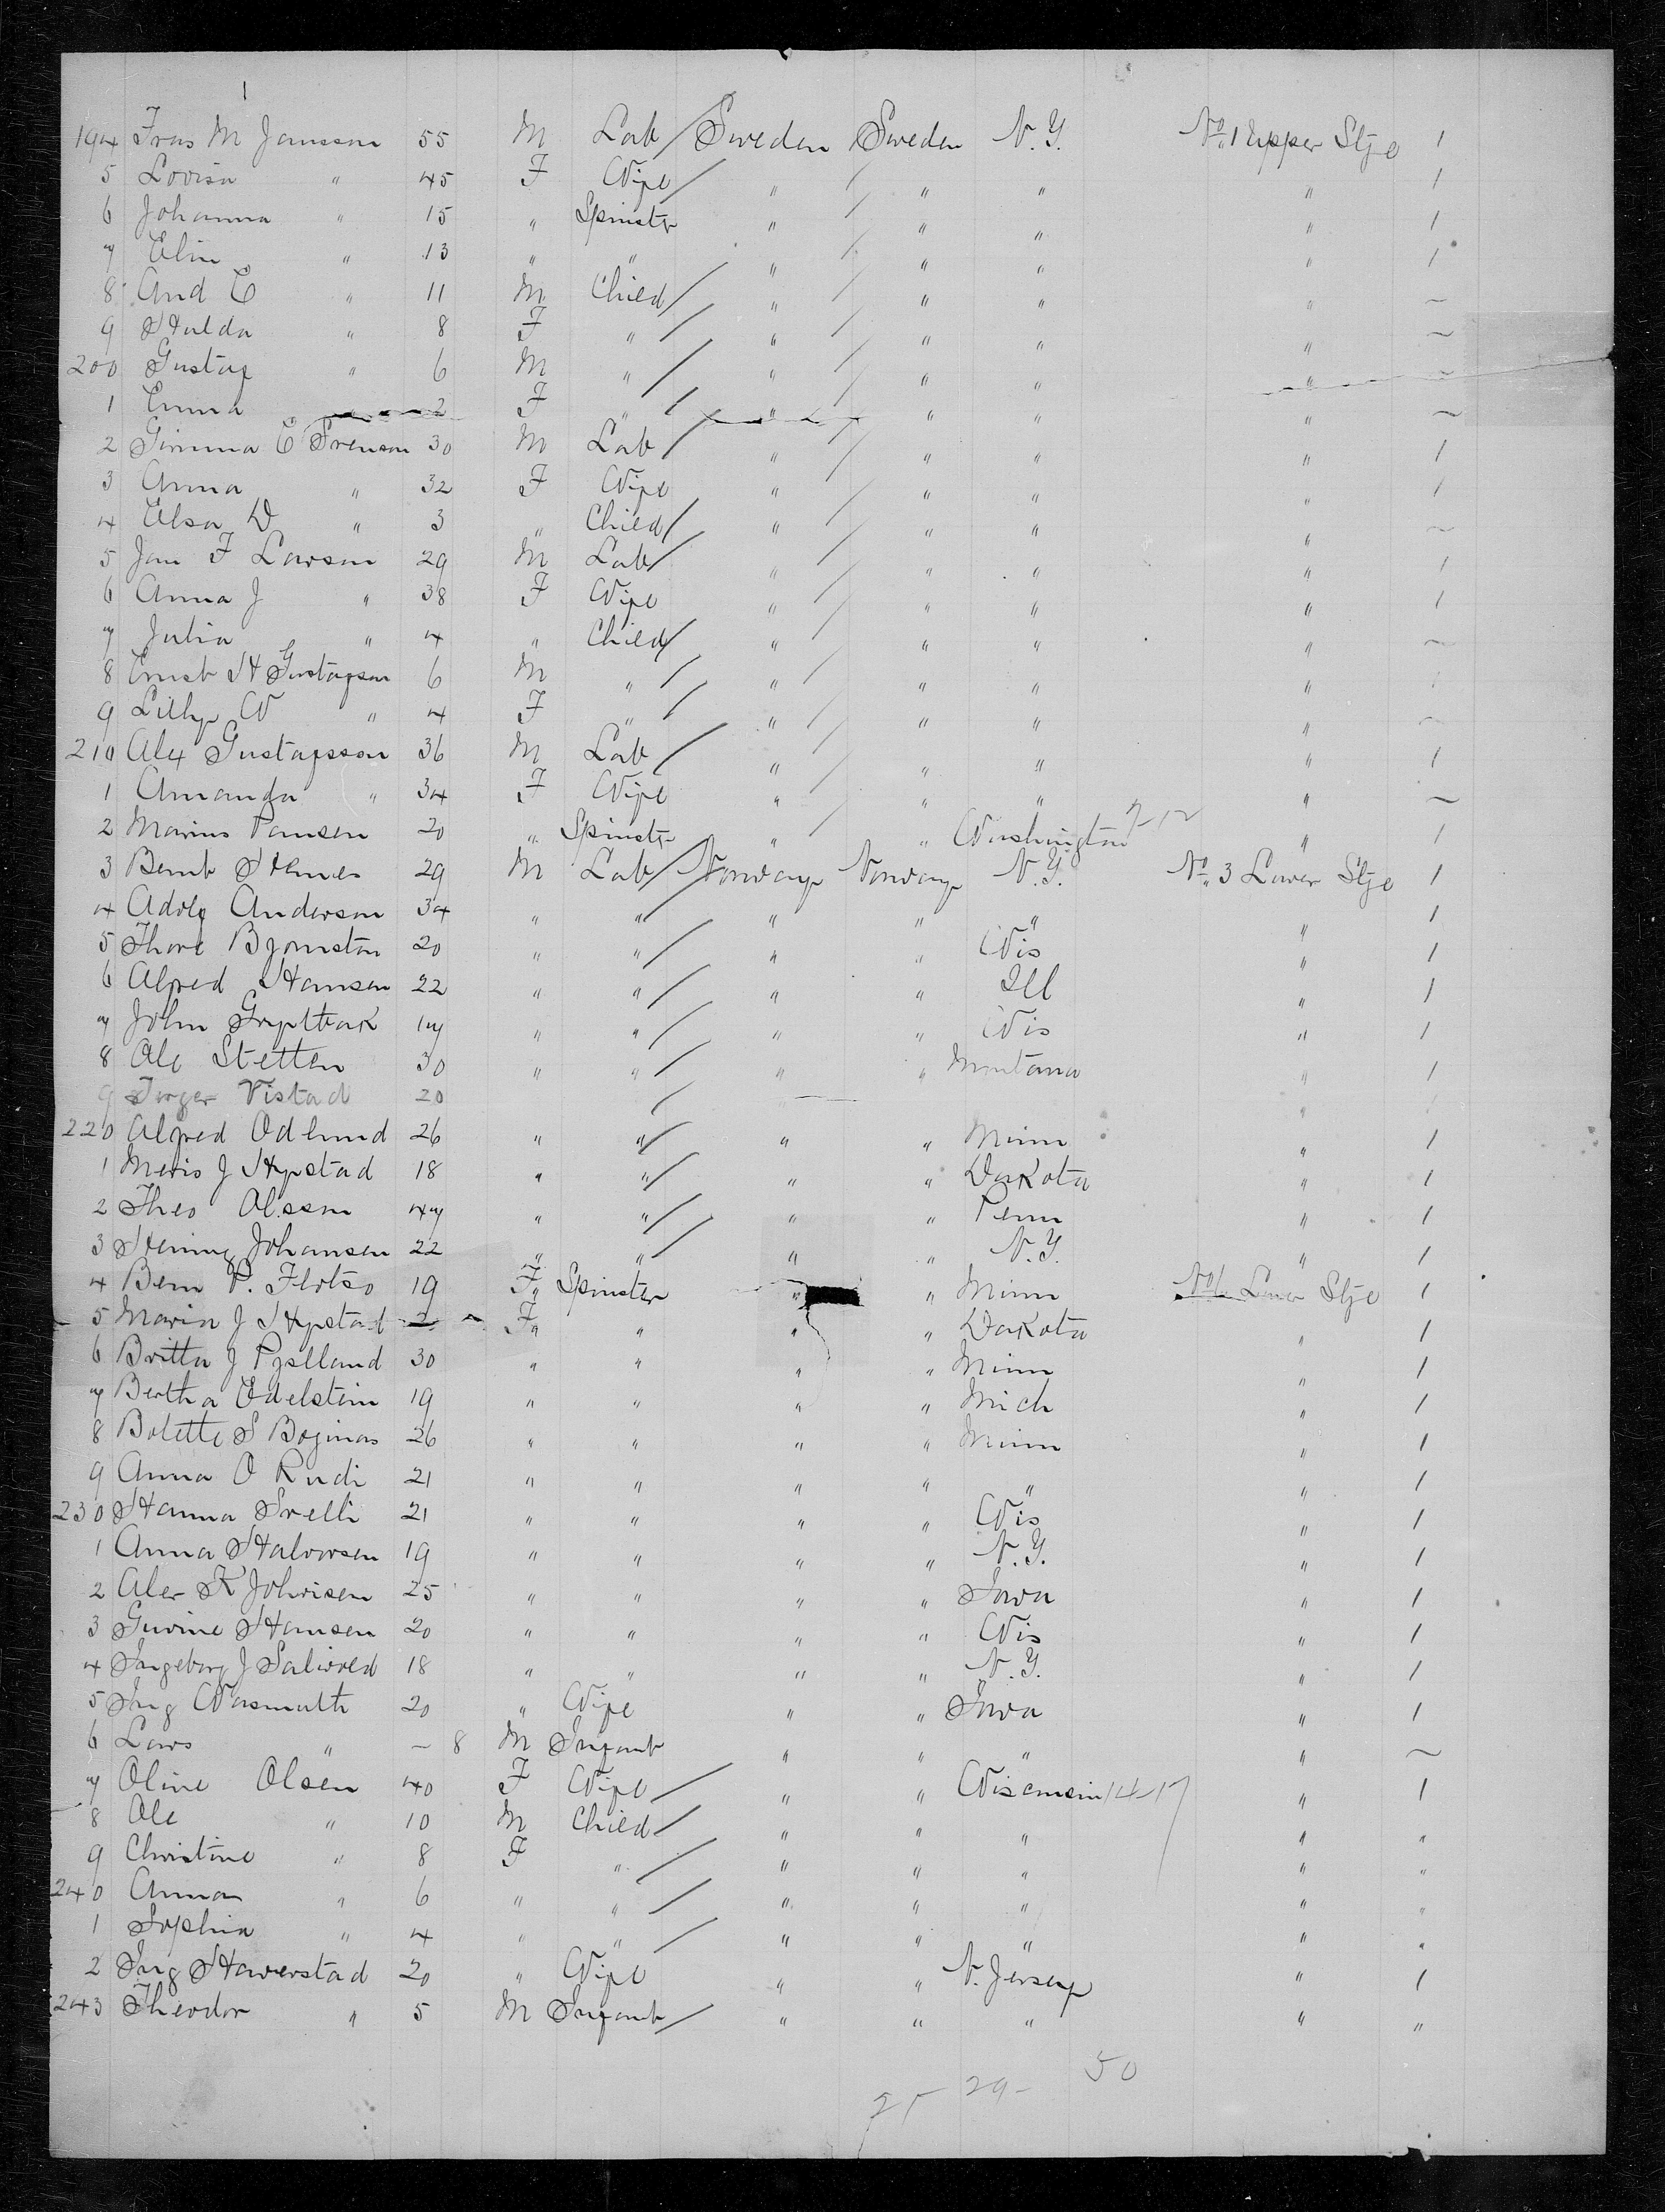 194 Fras M Jansson 55 M Lab Sweden Sweden N.Y. No. 1 Upper Stge 1
5 Lovisa " 45 F Wife " " " " 1
6 Johanna " 15 " Spinster " " " " 1
7 Elin " 13 " " " " " " 1
8 And E " 11 M Child " " " " ~
9 Hulda " 8 F " " " " " ~
200 Gustaf " 6 M " " " " " ~
1 Emma 2 F " " " " " ~
2 Simma E Svenson 30 M Lab " " " " 1
3 Anna " 32 F Wife " " " " 1
4 Elsa D " 3 " Child " " " " ~
5 Jan F Larson 29 M Lab " " " " 1
6 Anna J " 38 F Wife " " " " 1
7 Julia " 4 " Child " " " " ~
8 Ernst H Gustafson 6 M " " " " "
9 Lilly W " 4 F " " " " " ~
210 Alex Gustafsson 36 M Lab " " " " 1
1 Amanda " 34 F Wife " " " " ~
2 Marius 20 " Spinster " " Washington " 1
3 Bernt 29 M Lab Norway Norway N.Y. No. 3 Lower Stge 1
4 Adolf Anderson 34 " " " " " " 1
5 Thore Bjornston 20 " " " " Wis " 1
6 Alfred Hansen 22 " " " " Ill " 1
7 John 17 " " " " Wis " 1
8 Ole Stetten 30 " " " " Montana " 1
9 Torger Vistad 20 "
220 Alfred Odlund 26 " " " " Minn " 1
1 J Hypstad 18 " " " " Dakota " 1
2 Theo Olsson 47 " " " " Penn " 1
3 Hening Johansen 22 " " " " N.Y. " 1
4 Bern P. Flotso 19 F " Spinster " " Minn No 1 Lower Stge 1
5 Maria J Hypstad 2 F " " " " Dakota " 1
6 Britta J 30 " " " " Minn " 1
7 Bertha Edelstein 19 " " " " Mich " 1
8 Bolette S 26 " " " " Minn " 1
9 Anna O Rudi 21 " " " " " " 1
230 Hanna Srelli 21 " " " " Wis " 1
1 Anna Halvorsen 19 " " " " N.Y. " 1
2 K 25 " " " " Iowa " 1
3 Hansen 20 " " " " Wis " 1
4 Ingeborg J 18 " " " " N.Y. " 1
5 Ing Wasmuth 20 " Wife " " Iowa " 1
6 Lars " – 8 M Infant " " " " ~
7 Oline Olsen 40 F Wife " " Wisconsin 14-17 " 1
8 Ole " 10 M Child " " " " "
9 Christine " 8 F " " " " " "
240 Anna " 6 " " " " " " "
1 Sophia " 4 " " " " " " "
2 Ing Haverstad 20 " Wife " " N. Jersey " 1
243 Theodor " 5 M Infant " " " " "
50
29-